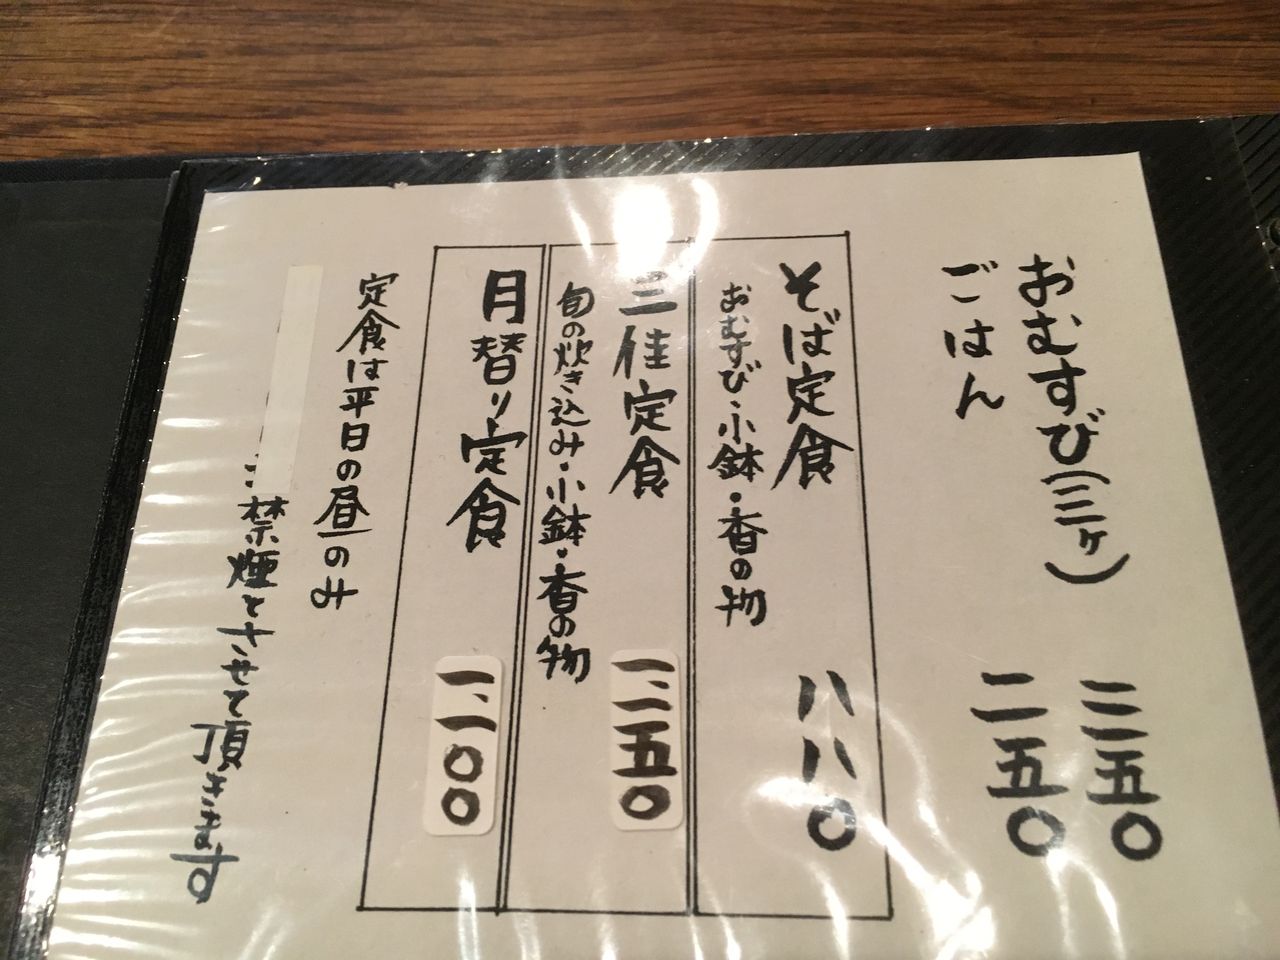 おむすび(三ヶ) 三五〇
ごはん 二五〇
そば定食 八八〇
おむすび・小鉢・香の物
三佳定食 一、二五〇
旬の炊き込み・小鉢・香の物
月替り定食 一、一〇〇
定食は平日の昼のみ
禁煙とさせて頂きます